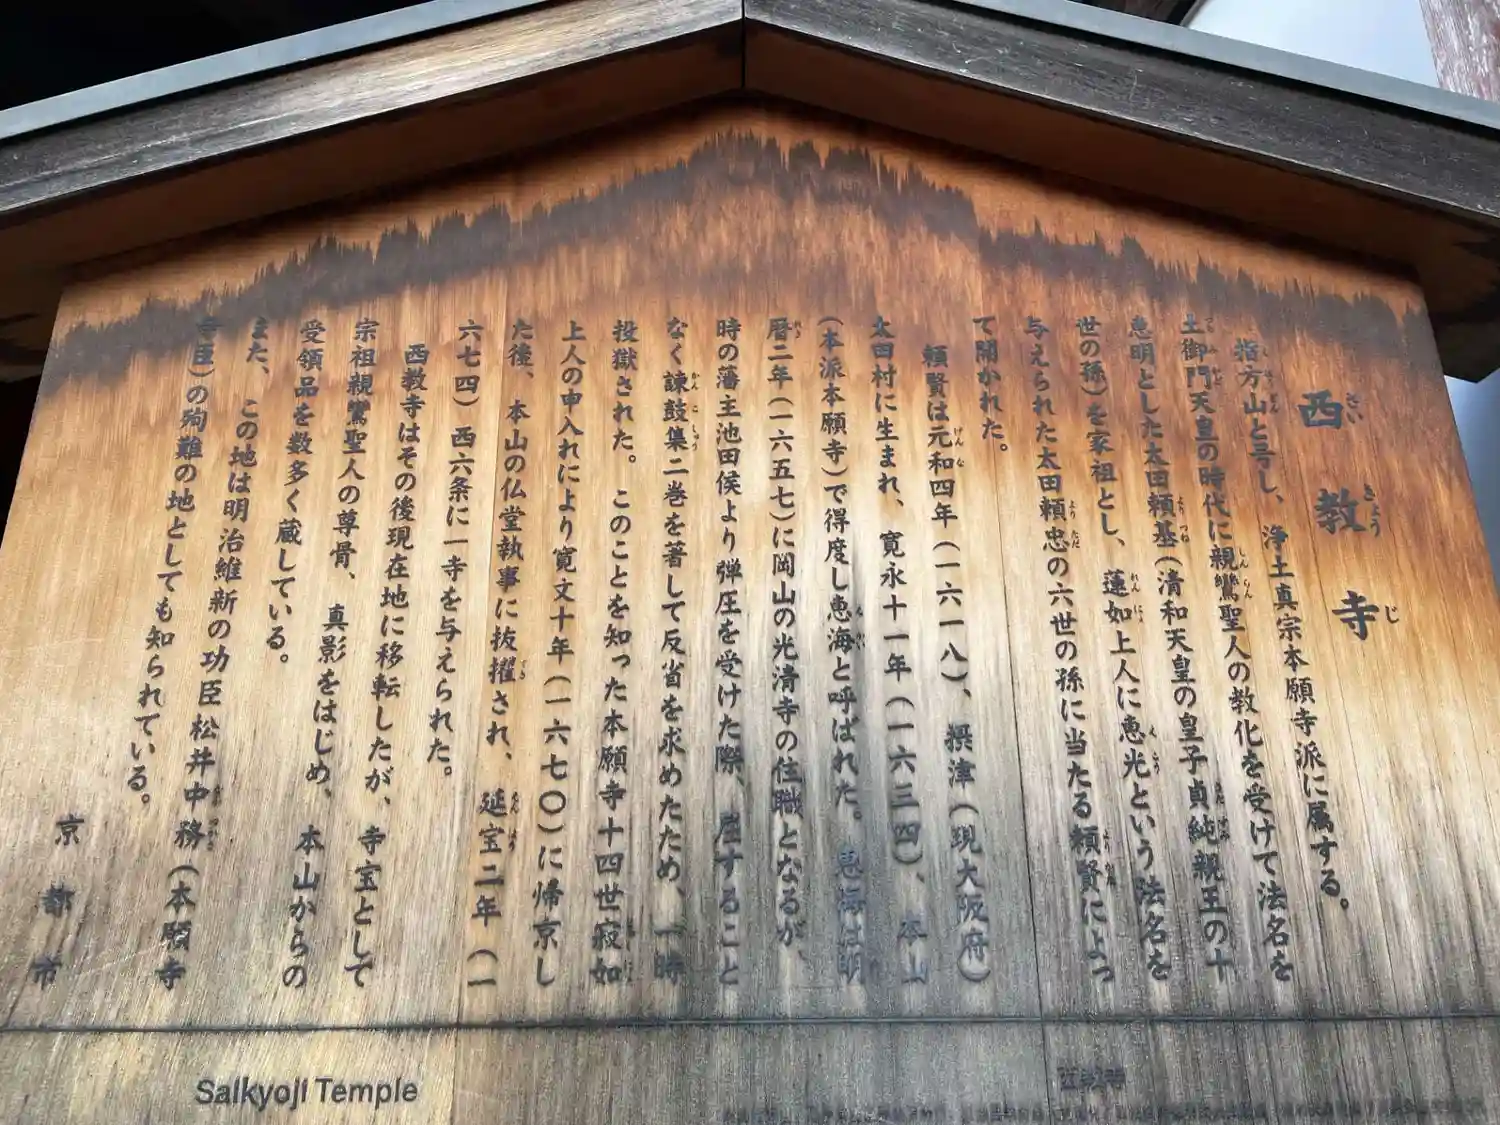 西教寺
さいきょうじ
指方山と号し、浄土真宗本願寺派に属する。
土御門天皇の時代に親鸞聖人の教化を受けて法名を
恵明とした太田頼基(清和天皇の皇子貞純親王の十
世の孫)を家祖とし、蓮如上人に恵光という法名を
与えられた太田頼忠の六世の孫に当たる頼賢によっ
て開かれた。
頼賢は元和四年(一六一八)、摂津(現大阪府)
太田村に生まれ、寛永十一年(一六三四)、本山
(本派本願寺)で得度し恵海と呼ばれた。恵海は明
暦二年(一六五七)に岡山の光清寺の住職となるが、
時の藩主池田侯より弾圧を受けた際、屈すること
なく諫鼓集二巻を著して反省を求めたため、一時
投獄された。このことを知った本願寺十四世寂如
上人の申入れにより寛文十年(一六七〇)に帰京し
た後、本山の仏堂執事に抜擢され、延宝二年(一
六七四)西六条に一寺を与えられた。
西教寺はその後現在地に移転したが、寺宝として
宗祖親鸞聖人の尊骨、真影をはじめ、本山からの
受領品を数多く蔵している。
また、この地は明治維新の功臣松井中務(本願寺
寺臣)の殉難の地としても知られている。
京都市
Saikyoji Temple